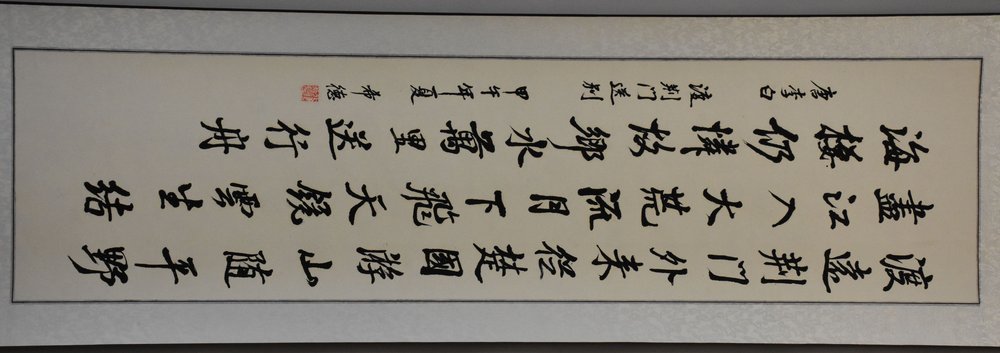 渡遠荆門外来從楚國游山随平野
盡江入大荒流月下飛天鏡雲生结
海樓仍憐故鄉水萬里送行舟
唐李白 渡荆門送别 甲午年夏 希德